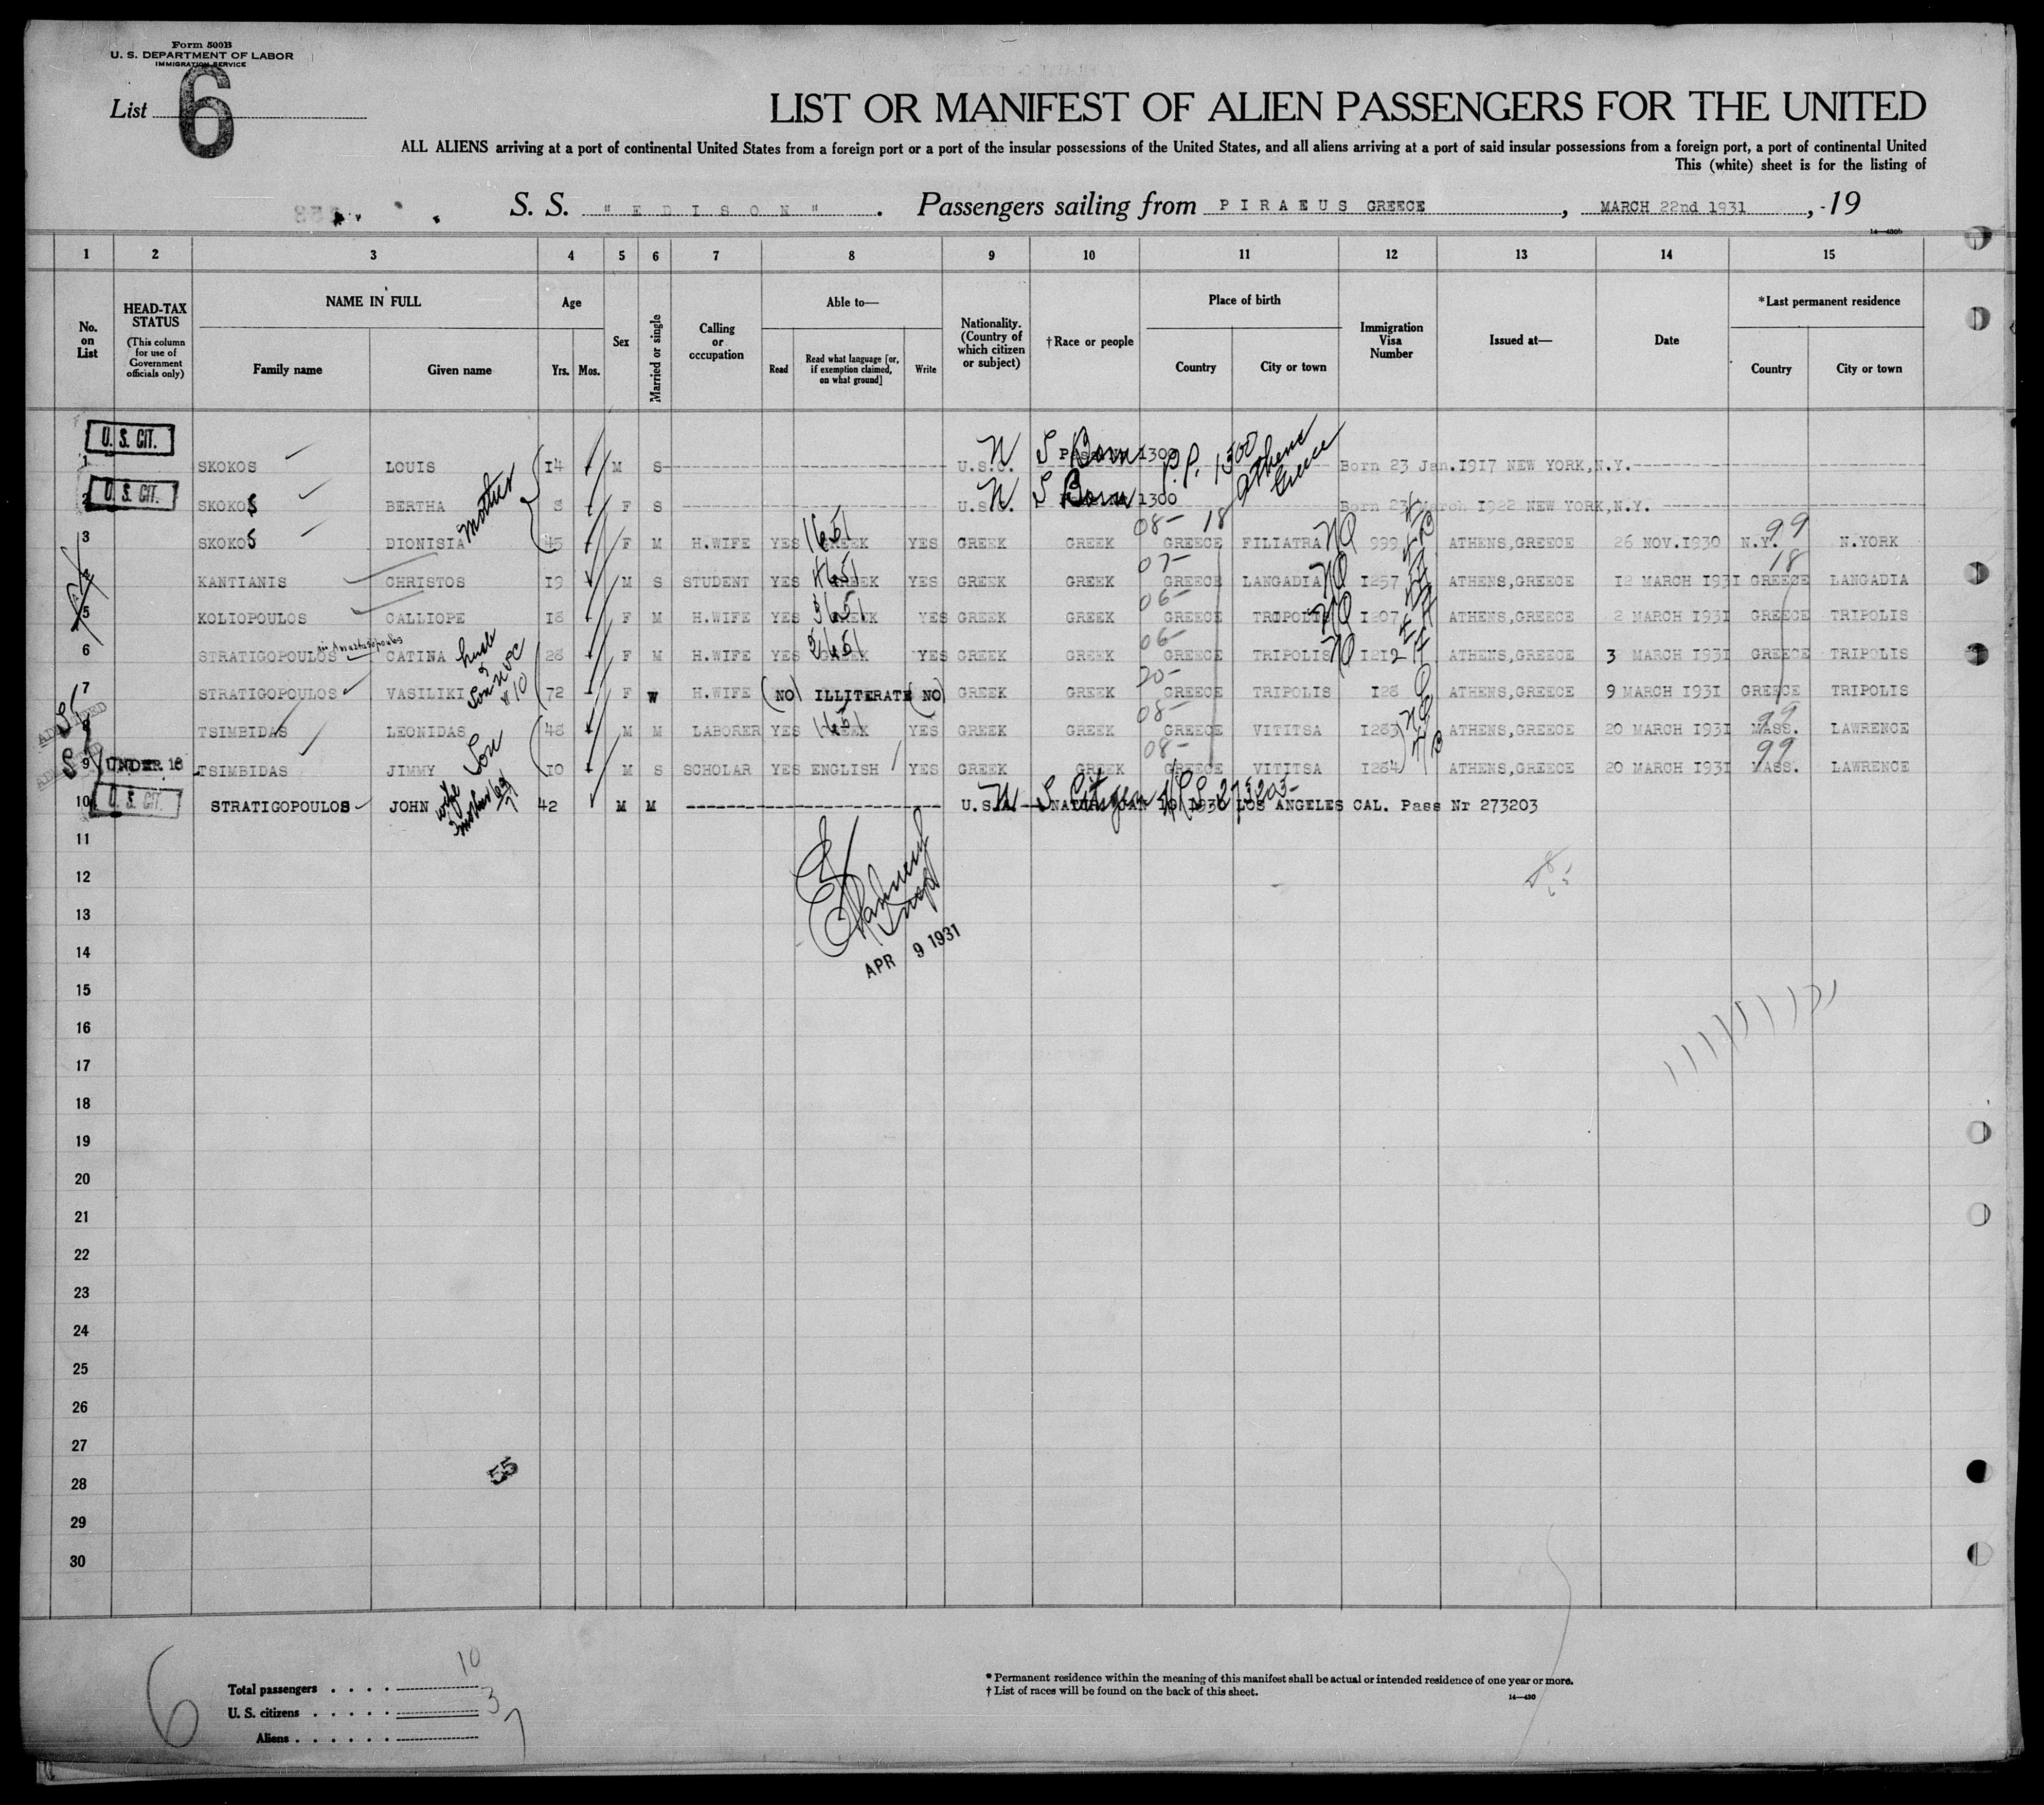 Form 500B
U. S. DEPARTMENT OF LABOR
IMMIGRATION SERVICE
List 6
LIST OR MANIFEST OF ALIEN PASSENGERS FOR THE UNITED
ALL ALIENS arriving at a port of continental United States from a foreign port or a port of the insular possessions of the United States, and all aliens arriving at a port of said insular possessions from a foreign port, a port of continental United
This (white) sheet is for the listing of
S. S. "EDISON". Passengers sailing from PIRAEUS GREECE, MARCH 22nd 1931, -19
14—430b
1 2 3 4 5 6 7 8 9 10 11 12 13 14 15
No. on List
HEAD-TAX STATUS (This column for use of Government officials only)
NAME IN FULL
Family name Given name
Age
Yrs. Mos.
Sex
Married or single
Calling or occupation
Able to—
Read Read what language [or, if exemption claimed, on what ground] Write
Nationality. (Country of which citizen or subject)
†Race or people
Place of birth
Country City or town
Immigration Visa Number
Issued at—
Date
*Last permanent residence
Country City or town
U. S. CIT.
1 SKOKOS LOUIS 14 M S U.S.C. N S Born 1300 P.P. 1300 Athens Greece Born 23 Jan.1917 NEW YORK,N.Y.
U. S. CIT.
2 SKOKOS BERTHA F S U.S.C. N S Born 1300 Born 23 March 1922 NEW YORK,N.Y.
mother
3 SKOKOS DIONISIA 45 F M H.WIFE YES GREEK YES GREEK GREEK 08- 18 GREECE FILIATRA NQ 999 ATHENS,GREECE 26 NOV.1930 N.Y. 99 N.YORK
4 KANTIANIS CHRISTOS 19 M S STUDENT YES GREEK YES GREEK GREEK 07- GREECE LANGADIA NQ 1257 ATHENS,GREECE 12 MARCH 1931 GREECE 18 LANGADIA
5 KOLIOPOULOS CALLIOPE 18 F M H.WIFE YES GREEK YES GREEK GREEK 06- GREECE TRIPOLIS NQ 1207 ATHENS,GREECE 2 MARCH 1931 GREECE TRIPOLIS
6 STRATIGOPOULOS CATINA 28 F M H.WIFE YES GREEK YES GREEK GREEK 06- GREECE TRIPOLIS NQ 1212 ATHENS,GREECE 3 MARCH 1931 GREECE TRIPOLIS
7 STRATIGOPOULOS VASILIKI 72 F W H.WIFE (NO) ILLITERATE (NO) GREEK GREEK 20- GREECE TRIPOLIS 128 Q ATHENS,GREECE 9 MARCH 1931 GREECE TRIPOLIS
8 TSIMBIDAS LEONIDAS 48 M M LABORER YES GREEK YES GREEK GREEK 08- GREECE VITITSA 1283 NQ ATHENS,GREECE 20 MARCH 1931 MASS. 99 LAWRENCE
Son
9 UNDER 16 TSIMBIDAS JIMMY 10 M S SCHOLAR YES ENGLISH YES GREEK GREEK 08- GREECE VITITSA 1284 ATHENS,GREECE 20 MARCH 1931 MASS. 99 LAWRENCE
U. S. CIT.
10 STRATIGOPOULOS JOHN wife mother 42 M M U.S.A. N S Citizen 273203 LOS ANGELES CAL. Pass Nr 273203
11
12
13
APR 9 1931
14
15
16
17
18
19
20
21
22
23
24
25
26
27
55
28
29
30
6
Total passengers 10
U. S. citizens 3
Aliens 7
* Permanent residence within the meaning of this manifest shall be actual or intended residence of one year or more.
† List of races will be found on the back of this sheet.
14—430